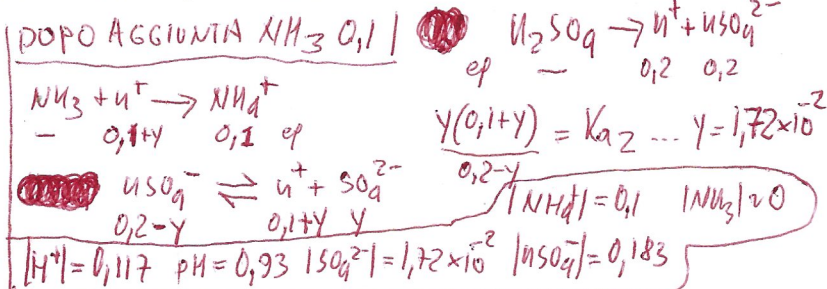 DOPO AGGIUNTA NH3 0,1
H2SO4 → H+ + HSO4^2-
ep — 0,2 0,2
NH3 + H+ → NH4+
— 0,1+y 0,1 ep
y(0,1+y) / 0,2-y = Ka2 .... y = 1,72×10^-2
HSO4^- ⇌ H+ + SO4^2-
0,2-y 0,1+y y
|NH4+| = 0,1 |NH3| ≈ 0
|H+| = 0,117 pH = 0,93 |SO4^2-| = 1,72×10^-2 |HSO4^-| = 0,183